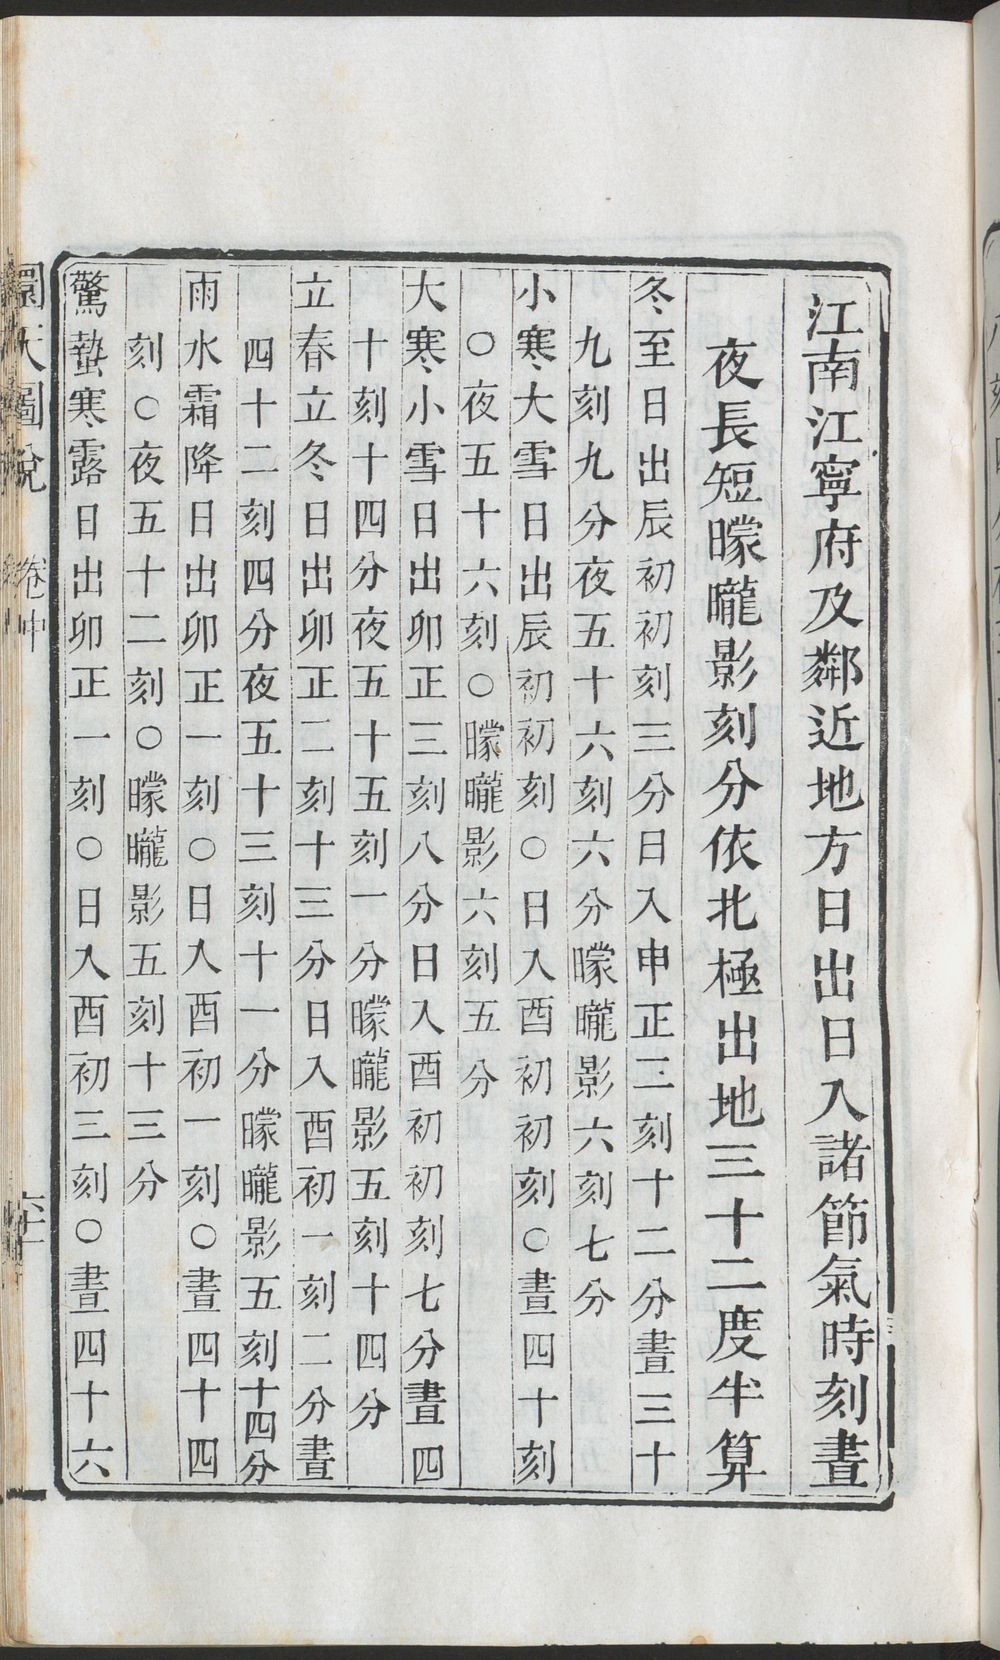 江南江寧府及鄰近地方日出日入諸節氣時刻晝
夜長短曚曨影刻分依北極出地三十二度半算
冬至日出辰初初刻三分日入申正三刻十二分晝三十
九刻九分夜五十六刻六分曚曨影六刻七分
小寒大雪日出辰初初刻〇日入酉初初刻〇晝四十刻
〇夜五十六刻〇曚曨影六刻五分
大寒小雪日出卯正三刻八分日入酉初初刻七分晝四
十刻十四分夜五十五刻一分曚曨影五刻十四分
立春立冬日出卯正二刻十三分日入酉初一刻二分晝
四十二刻四分夜五十三刻十一分曚曨影五刻十四分
雨水霜降日出卯正一刻〇日入酉初一刻〇晝四十四
刻〇夜五十二刻〇曚曨影五刻十三分
驚蟄寒露日出卯正一刻〇日入酉初三刻〇晝四十六
圜天圖說 卷中